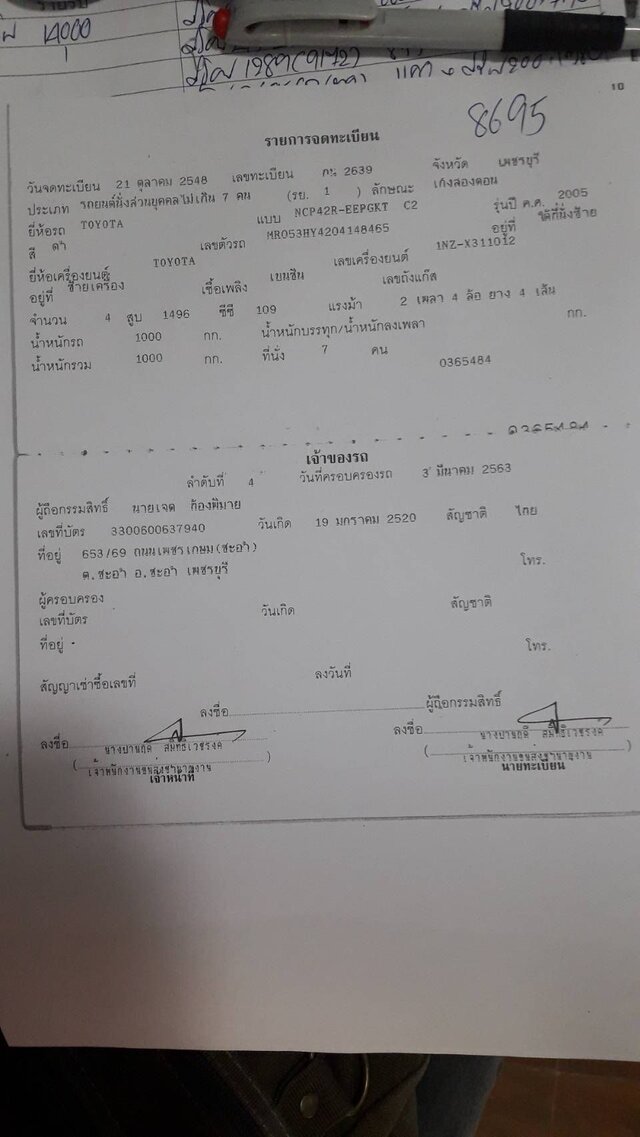 14000
10
8695
รายการจดทะเบียน
วันจดทะเบียน 21 ตุลาคม 2548 เลขทะเบียน กน 2639 จังหวัด เพชรบุรี
ประเภท รถยนต์นั่งส่วนบุคคลไม่เกิน 7 คน (รย. 1 ) ลักษณะ เก๋งสองตอน
ยี่ห้อรถ TOYOTA แบบ NCP42R-EEPGKT C2 รุ่นปี ค.ศ. 2005
สี ดำ เลขตัวรถ MR053HY4204148465 อยู่ที่ ใต้ที่นั่งซ้าย
ยี่ห้อเครื่องยนต์ TOYOTA เลขเครื่องยนต์ 1NZ-X311012
อยู่ที่ ซ้ายเครื่อง เชื้อเพลิง เบนซิน เลขถังแก๊ส
จำนวน 4 สูบ 1496 ซีซี 109 แรงม้า 2 เพลา 4 ล้อ ยาง 4 เส้น
น้ำหนักรถ 1000 กก. น้ำหนักบรรทุก/น้ำหนักลงเพลา กก.
น้ำหนักรวม 1000 กก. ที่นั่ง 7 คน
0365484
เจ้าของรถ
ลำดับที่ 4 วันที่ครอบครองรถ 3 มีนาคม 2563
ผู้ถือกรรมสิทธิ์ นายเจต ก้องพิมาย
เลขที่บัตร 3300600637940 วันเกิด 19 มกราคม 2520 สัญชาติ ไทย
ที่อยู่ 653/69 ถนนเพชรเกษม(ชะอำ)
ต.ชะอำ อ.ชะอำ เพชรบุรี โทร.
ผู้ครอบครอง
เลขที่บัตร วันเกิด สัญชาติ
ที่อยู่ - โทร.
สัญญาเช่าซื้อเลขที่ ลงวันที่
ลงชื่อ ผู้ถือกรรมสิทธิ์
ลงชื่อ ลงชื่อ
เจ้าพนักงานขนส่งชำนาญงาน เจ้าพนักงานขนส่งชำนาญงาน
เจ้าหน้าที่ นายทะเบียน